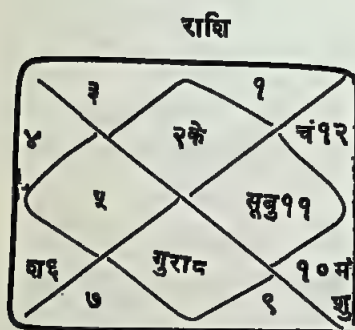 राशि
३ १
४ २के चं१२
५ सूबु११
श६ गुरा८ १०मं
७ ९ शु